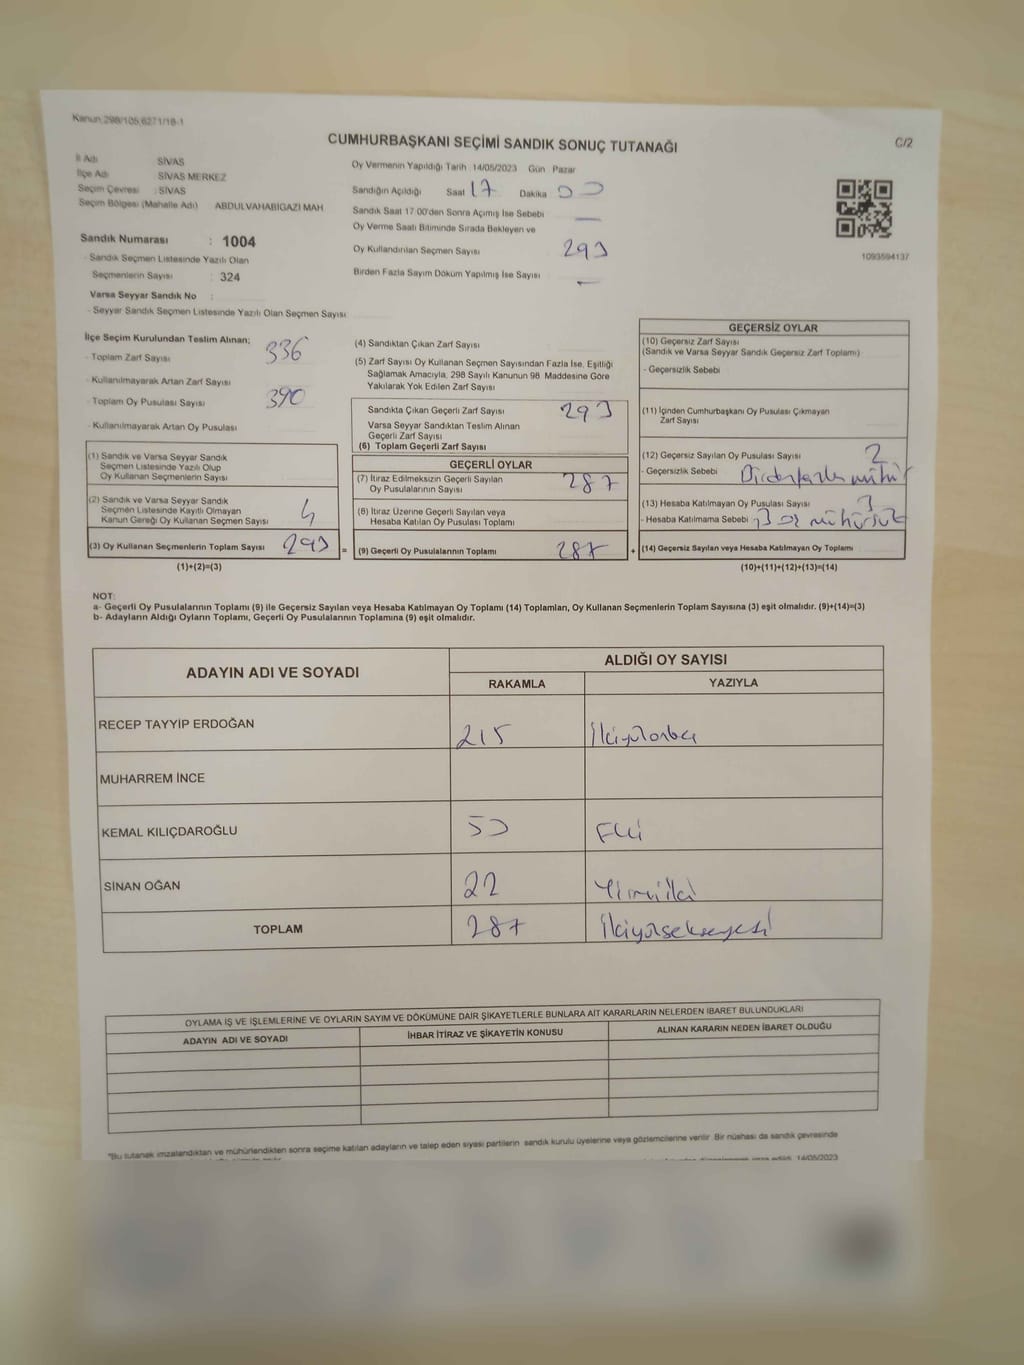 Kanun 298/105,6271/18-1
CUMHURBAŞKANI SEÇİMİ SANDIK SONUÇ TUTANAĞI
C/2
İl Adı SİVAS
İlçe Adı SİVAS MERKEZ
Seçim Çevresi : SİVAS
Seçim Bölgesi (Mahalle Adı) ABDULVAHABİGAZİ MAH
Sandık Numarası : 1004
- Sandık Seçmen Listesinde Yazılı Olan
Seçmenlerin Sayısı : 324
Varsa Seyyar Sandık No :
- Seyyar Sandık Seçmen Listesinde Yazılı Olan Seçmen Sayısı
Oy Vermenin Yapıldığı Tarih 14/05/2023 Gün Pazar
Sandığın Açıldığı Saat 17 Dakika 00
Sandık Saat 17:00'den Sonra Açımış İse Sebebi —
Oy Verme Saati Bitiminde Sırada Bekleyen ve
Oy Kullandırılan Seçmen Sayısı 293
Birden Fazla Sayım Döküm Yapılmış İse Sayısı —
1093594137
İlçe Seçim Kurulundan Teslim Alınan;
- Toplam Zarf Sayısı 336
- Kullanılmayarak Artan Zarf Sayısı
- Toplam Oy Pusulası Sayısı 390
- Kullanılmayarak Artan Oy Pusulası
(1) Sandık ve Varsa Seyyar Sandık
Seçmen Listesinde Yazılı Olup
Oy Kullanan Seçmenlerin Sayısı
(2) Sandık ve Varsa Seyyar Sandık
Seçmen Listesinde Kayıtlı Olmayan
Kanun Gereği Oy Kullanan Seçmen Sayısı 4
(3) Oy Kullanan Seçmenlerin Toplam Sayısı 293 =
(1)+(2)=(3)
(4) Sandıktan Çıkan Zarf Sayısı
(5) Zarf Sayısı Oy Kullanan Seçmen Sayısından Fazla İse, Eşitliği
Sağlamak Amacıyla, 298 Sayılı Kanunun 98. Maddesine Göre
Yakılarak Yok Edilen Zarf Sayısı
Sandıkta Çıkan Geçerli Zarf Sayısı 293
Varsa Seyyar Sandıktan Teslim Alınan
Geçerli Zarf Sayısı
(6) Toplam Geçerli Zarf Sayısı
GEÇERLİ OYLAR
(7) İtiraz Edilmeksizin Geçerli Sayılan
Oy Pusulalarının Sayısı 287
(8) İtiraz Üzerine Geçerli Sayılan veya
Hesaba Katılan Oy Pusulası Toplamı
(9) Geçerli Oy Pusulalarının Toplamı 287 +
GEÇERSİZ OYLAR
(10) Geçersiz Zarf Sayısı
(Sandık ve Varsa Seyyar Sandık Geçersiz Zarf Toplamı)
- Geçersizlik Sebebi
(11) İçinden Cumhurbaşkanı Oy Pusulası Çıkmayan
Zarf Sayısı
(12) Geçersiz Sayılan Oy Pusulası Sayısı 2
- Geçersizlik Sebebi
(13) Hesaba Katılmayan Oy Pusulası Sayısı 3
- Hesaba Katılmama Sebebi
(14) Geçersiz Sayılan veya Hesaba Katılmayan Oy Toplamı
(10)+(11)+(12)+(13)=(14)
NOT:
a- Geçerli Oy Pusulalarının Toplamı (9) ile Geçersiz Sayılan veya Hesaba Katılmayan Oy Toplamı (14) Toplamları, Oy Kullanan Seçmenlerin Toplam Sayısına (3) eşit olmalıdır. (9)+(14)=(3)
b- Adayların Aldığı Oyların Toplamı, Geçerli Oy Pusulalarının Toplamına (9) eşit olmalıdır.
ADAYIN ADI VE SOYADI
ALDIĞI OY SAYISI
RAKAMLA YAZIYLA
RECEP TAYYİP ERDOĞAN 215 İkiyüzonbeş
MUHARREM İNCE
KEMAL KILIÇDAROĞLU 50 Elli
SİNAN OĞAN 22 Yirmiiki
TOPLAM 287 İkiyüzseksenyedi
OYLAMA İŞ VE İŞLEMLERİNE VE OYLARIN SAYIM VE DÖKÜMÜNE DAİR ŞİKAYETLERLE BUNLARA AİT KARARLARIN NELERDEN İBARET BULUNDUKLARI
ADAYIN ADI VE SOYADI İHBAR İTİRAZ VE ŞİKAYETİN KONUSU ALINAN KARARIN NEDEN İBARET OLDUĞU
*Bu tutanak imzalandıktan ve mühürlendikten sonra seçime katılan adayların ve talep eden siyasi partilerin sandık kurulu üyelerine veya gözlemcilerine verilir. Bir nüshası da sandık çevresinde
14/05/2023